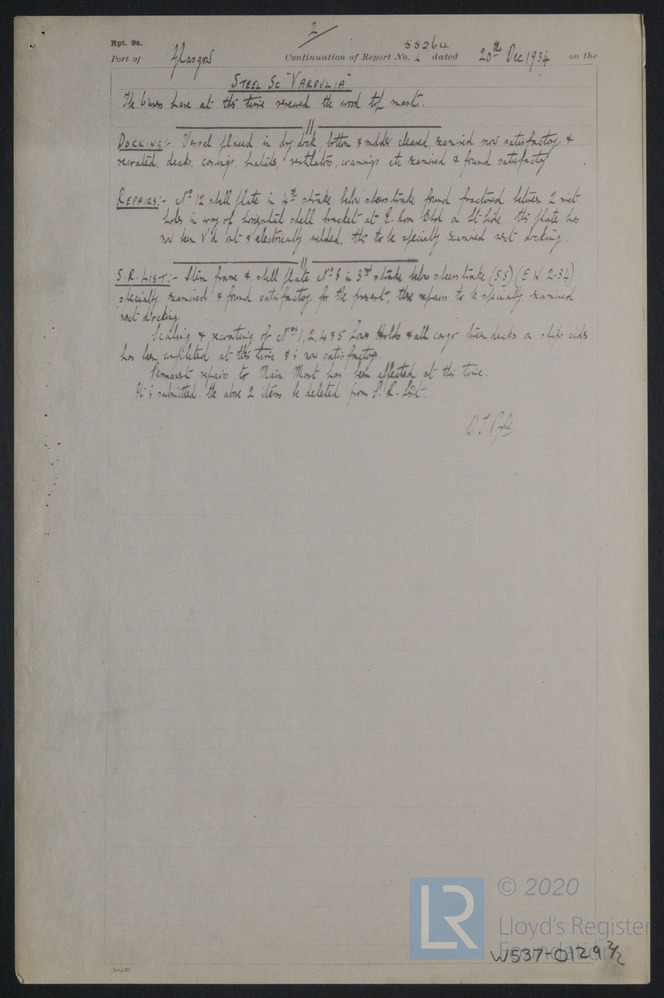 2/
Rpt. 9a.
Port of Glasgow Continuation of Report No. 55264 dated 20th Dec 1934 on the
STEEL SC "VARDULIA"
The Owners have at this time renewed the wood top mast.
DOCKING:- Vessel placed in dry dock, bottom & rudder cleaned, examined now satisfactory &
recoated, decks, casings, hatches, ventilators, coamings etc examined & found satisfactory
REPAIRS:- No 12 shell plate in 4th strake below sheerstrake found fractured between 2 rivet
holes in way of horizontal shell bracket at E. Room Bhd on St. side, this plate has
now been V'd out & electrically welded, this to be specially examined next docking.
S.R. LIST:- Stern frame & shell plate No 8 in 3rd strake below sheerstrake (SS) (E.W. 2-34)
specially examined & found satisfactory for the present, these repairs to be specially examined
next docking
Scaling & recoating of Nos 1, 2, 4 & 5 Lower Holds & all cargo tween decks on ships ends
has been completed at this time & is now satisfactory.
Permanent repairs to Main Mast has been effected at this time.
It is submitted the above 2 items be deleted from S.R. List.
© 2020
LR
Lloyd's Register
Foundation
W537-0129 2/2